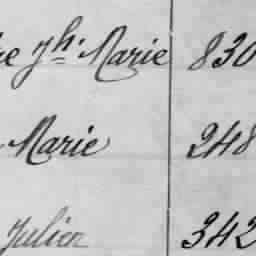 re Jh. Marie 830
Marie 248
Julien 342